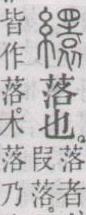 繯落也。
落者
叚落。
皆作落。木落乃